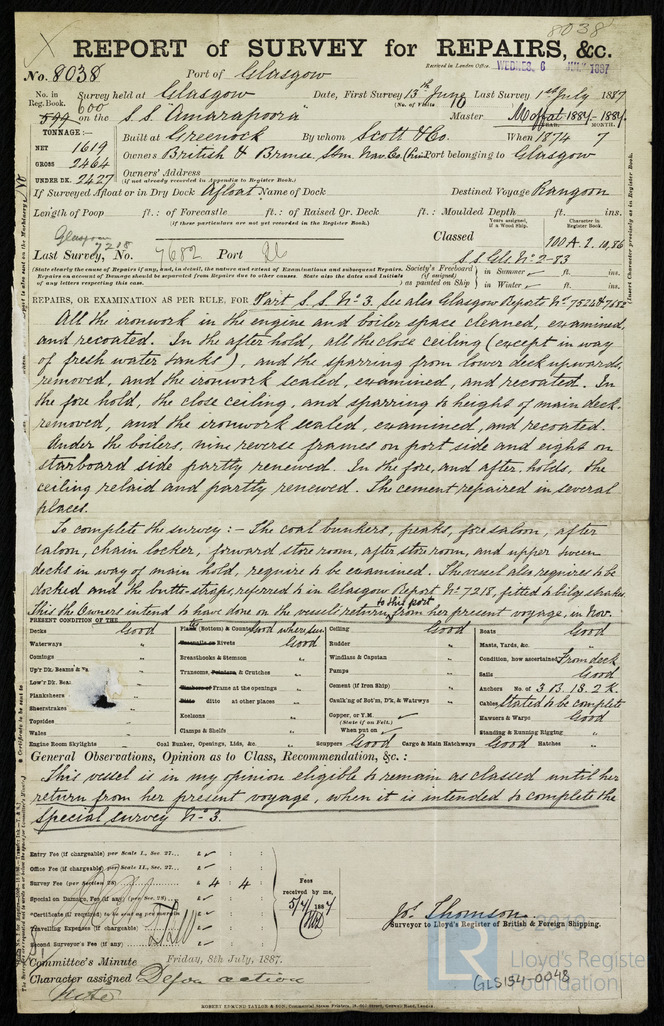 8038
REPORT of SURVEY for REPAIRS, &c.
No. 8038 Port of Glasgow Received in London Office WEDNES. 6 1887
No. in Reg. Book. Survey held at Glasgow Date, First Survey 13th June Last Survey 1st July 1887
(No. of Visits 10)
599 600 on the S.S. "Amarapoora" Master Moffat 1884-1884
YEAR. MONTH.
TONNAGE:— Built at Greenock By whom Scott & Co. When 1874 7
NET 1619
GROSS 2464 Owners British & Burmese Stm. Nav. Co. (Lim) Port belonging to Glasgow
UNDER DK. 2427 Owners' Address
(if not already recorded in Appendix to Register Book.)
If Surveyed Afloat or in Dry Dock Afloat Name of Dock Destined Voyage Rangoon
Length of Poop ft.: of Forecastle ft.: of Raised Qr. Deck ft.: Moulded Depth ft. ins.
(if these particulars are not yet recorded in the Register Book)
Years assigned, if a Wood Ship. Character in Register Book.
Glasgow 7218
Last Survey, No. 7682 Port Gls Classed 100 A.1. 10,86
S.S. Gls. No 2-83
(State clearly the cause of Repairs if any, and, in detail, the nature and extent of Examinations and subsequent Repairs. Repairs on account of Damage should be separated from Repairs due to other causes. State also the dates and Initials of any letters respecting this case.
Society's Freeboard (if assigned) as painted on Ship in Summer ft. ins.
in Winter ft. ins.
REPAIRS, OR EXAMINATION AS PER RULE, FOR Part S.S. No 3. See also Glasgow Reports Nos 7524 & 7682
All the ironwork in the engine and boiler space cleaned, examined,
and recoated. In the after hold, all the close ceiling (except in way
of fresh water tanks), and the sparring from lower deck upwards,
removed, and the ironwork scaled, examined, and recoated. In
the fore hold, the close ceiling, and sparring to height of main deck.
removed, and the ironwork scaled, examined, and recoated.
Under the boilers, nine reverse frames on port side and eight on
starboard side partly renewed. In the fore, and after, holds, the
ceiling relaid and partly renewed. The cement repaired in several
places.
To complete the survey:- The coal bunkers, peaks, fore saloon, after
saloon, chain locker, forward store room, after store room, and upper 'tween
decks in way of main hold, require to be examined. The vessel also requires to be
docked and the butt-straps, referred to in Glasgow Report No 7218, fitted to bilge strakes.
This the Owners intend to have done on the vessel's return to this port from her present voyage, in Nov.
PRESENT CONDITION OF THE
Decks Good
Waterways "
Comings "
Up'r Dk. Beams &
Low'r Dk. Bea
Planksheers
Sheerstrakes
Topsides "
Wales "
Engine Room Skylights "
Plates (Bottom) & Counter Good where seen
Treenails or Rivets Good
Breasthooks & Stemson "
Transoms, Pointers & Crutches "
Timbers of Frame at the openings "
Ditto ditto at other places "
Keelsons "
Clamps & Shelfs "
Coal Bunker, Openings, Lids, &c. "
Ceiling Good
Rudder "
Windlass & Capstan "
Pumps "
Cement (if Iron Ship) "
Caulk'ng of Bot'm, D'k, & Watrwys "
Copper, or Y.M. (State if on Felt.)
When put on
Scuppers Good Cargo & Main Hatchways Good
Boats Good
Masts, Yards, &c. "
Condition, how ascertained From deck
Sails Good
Anchors No. of 3 B. 1 S. 2 K.
Cables Stated to be complete
Hawsers & Warps Good
Standing & Running Rigging "
Hatches "
General Observations, Opinion as to Class, Recommendation, &c.:
This vessel is in my opinion eligible to remain as classed until her
return from her present voyage, when it is intended to complete the
special survey No 3.
Entry Fee (if chargeable) per Scale I., Sec. 27...
Office Fee (if chargeable) per Scale II., Sec. 27...
Survey Fee (per Section 28) £ 4 : 4 :
Special on Damage, Fee (if any) (per Sec. 28)...
*Certificate (if required) to be sent as per margin
Travelling Expenses (if chargeable)
Second Surveyor's Fee (if any)
Fees received by me, 5/7/1887
Jos. Thomson
Surveyor to Lloyd's Register of British & Foreign Shipping.
Committee's Minute Friday, 8th July, 1887.
Character assigned Defer action
Note
© 2019
LR Lloyd's Register Foundation
GLS154-0048
ROBERT EDMUND TAYLOR & SON,